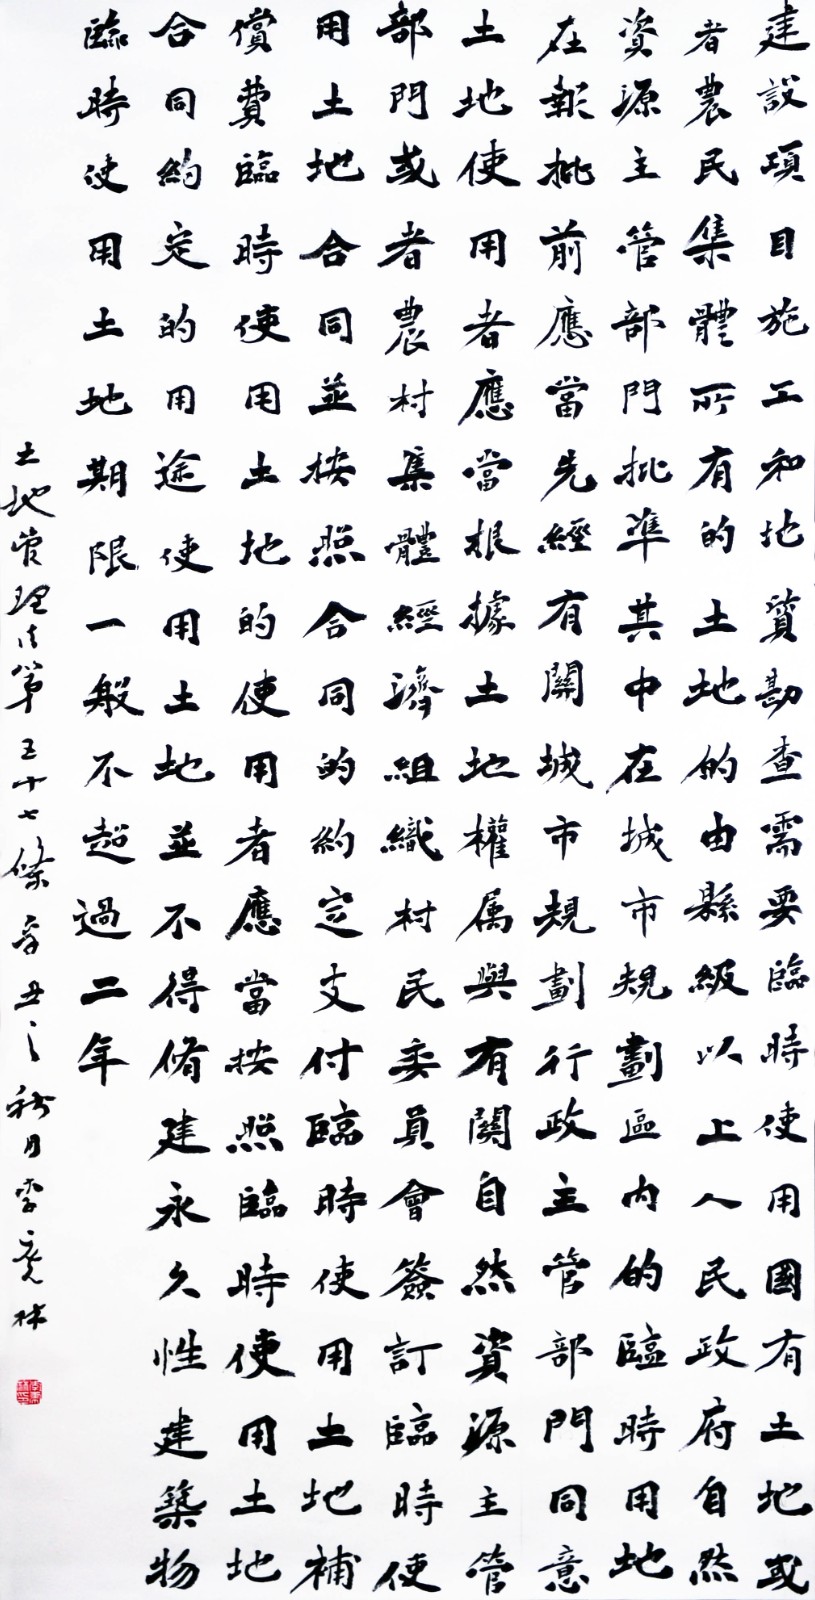 建設項目施工和地質勘查需要臨時使用國有土地或
者農民集體所有的土地的由縣級以上人民政府自然
資源主管部門批準其中在城市規劃區内的臨時用地
在報批前應當先經有關城市規劃行政主管部門同意
土地使用者應當根據土地權属與有關自然資源主管
部門或者農村集體經濟組織村民委員會簽訂臨時使
用土地合同並按照合同的約定支付臨時使用土地補
償費臨時使用土地的使用者應當按照臨時使用土地
合同約定的用途使用土地並不得脩建永久性建築物
臨時使用土地期限一般不超過二年
土地管理法第五十七條辛丑之秋月李林